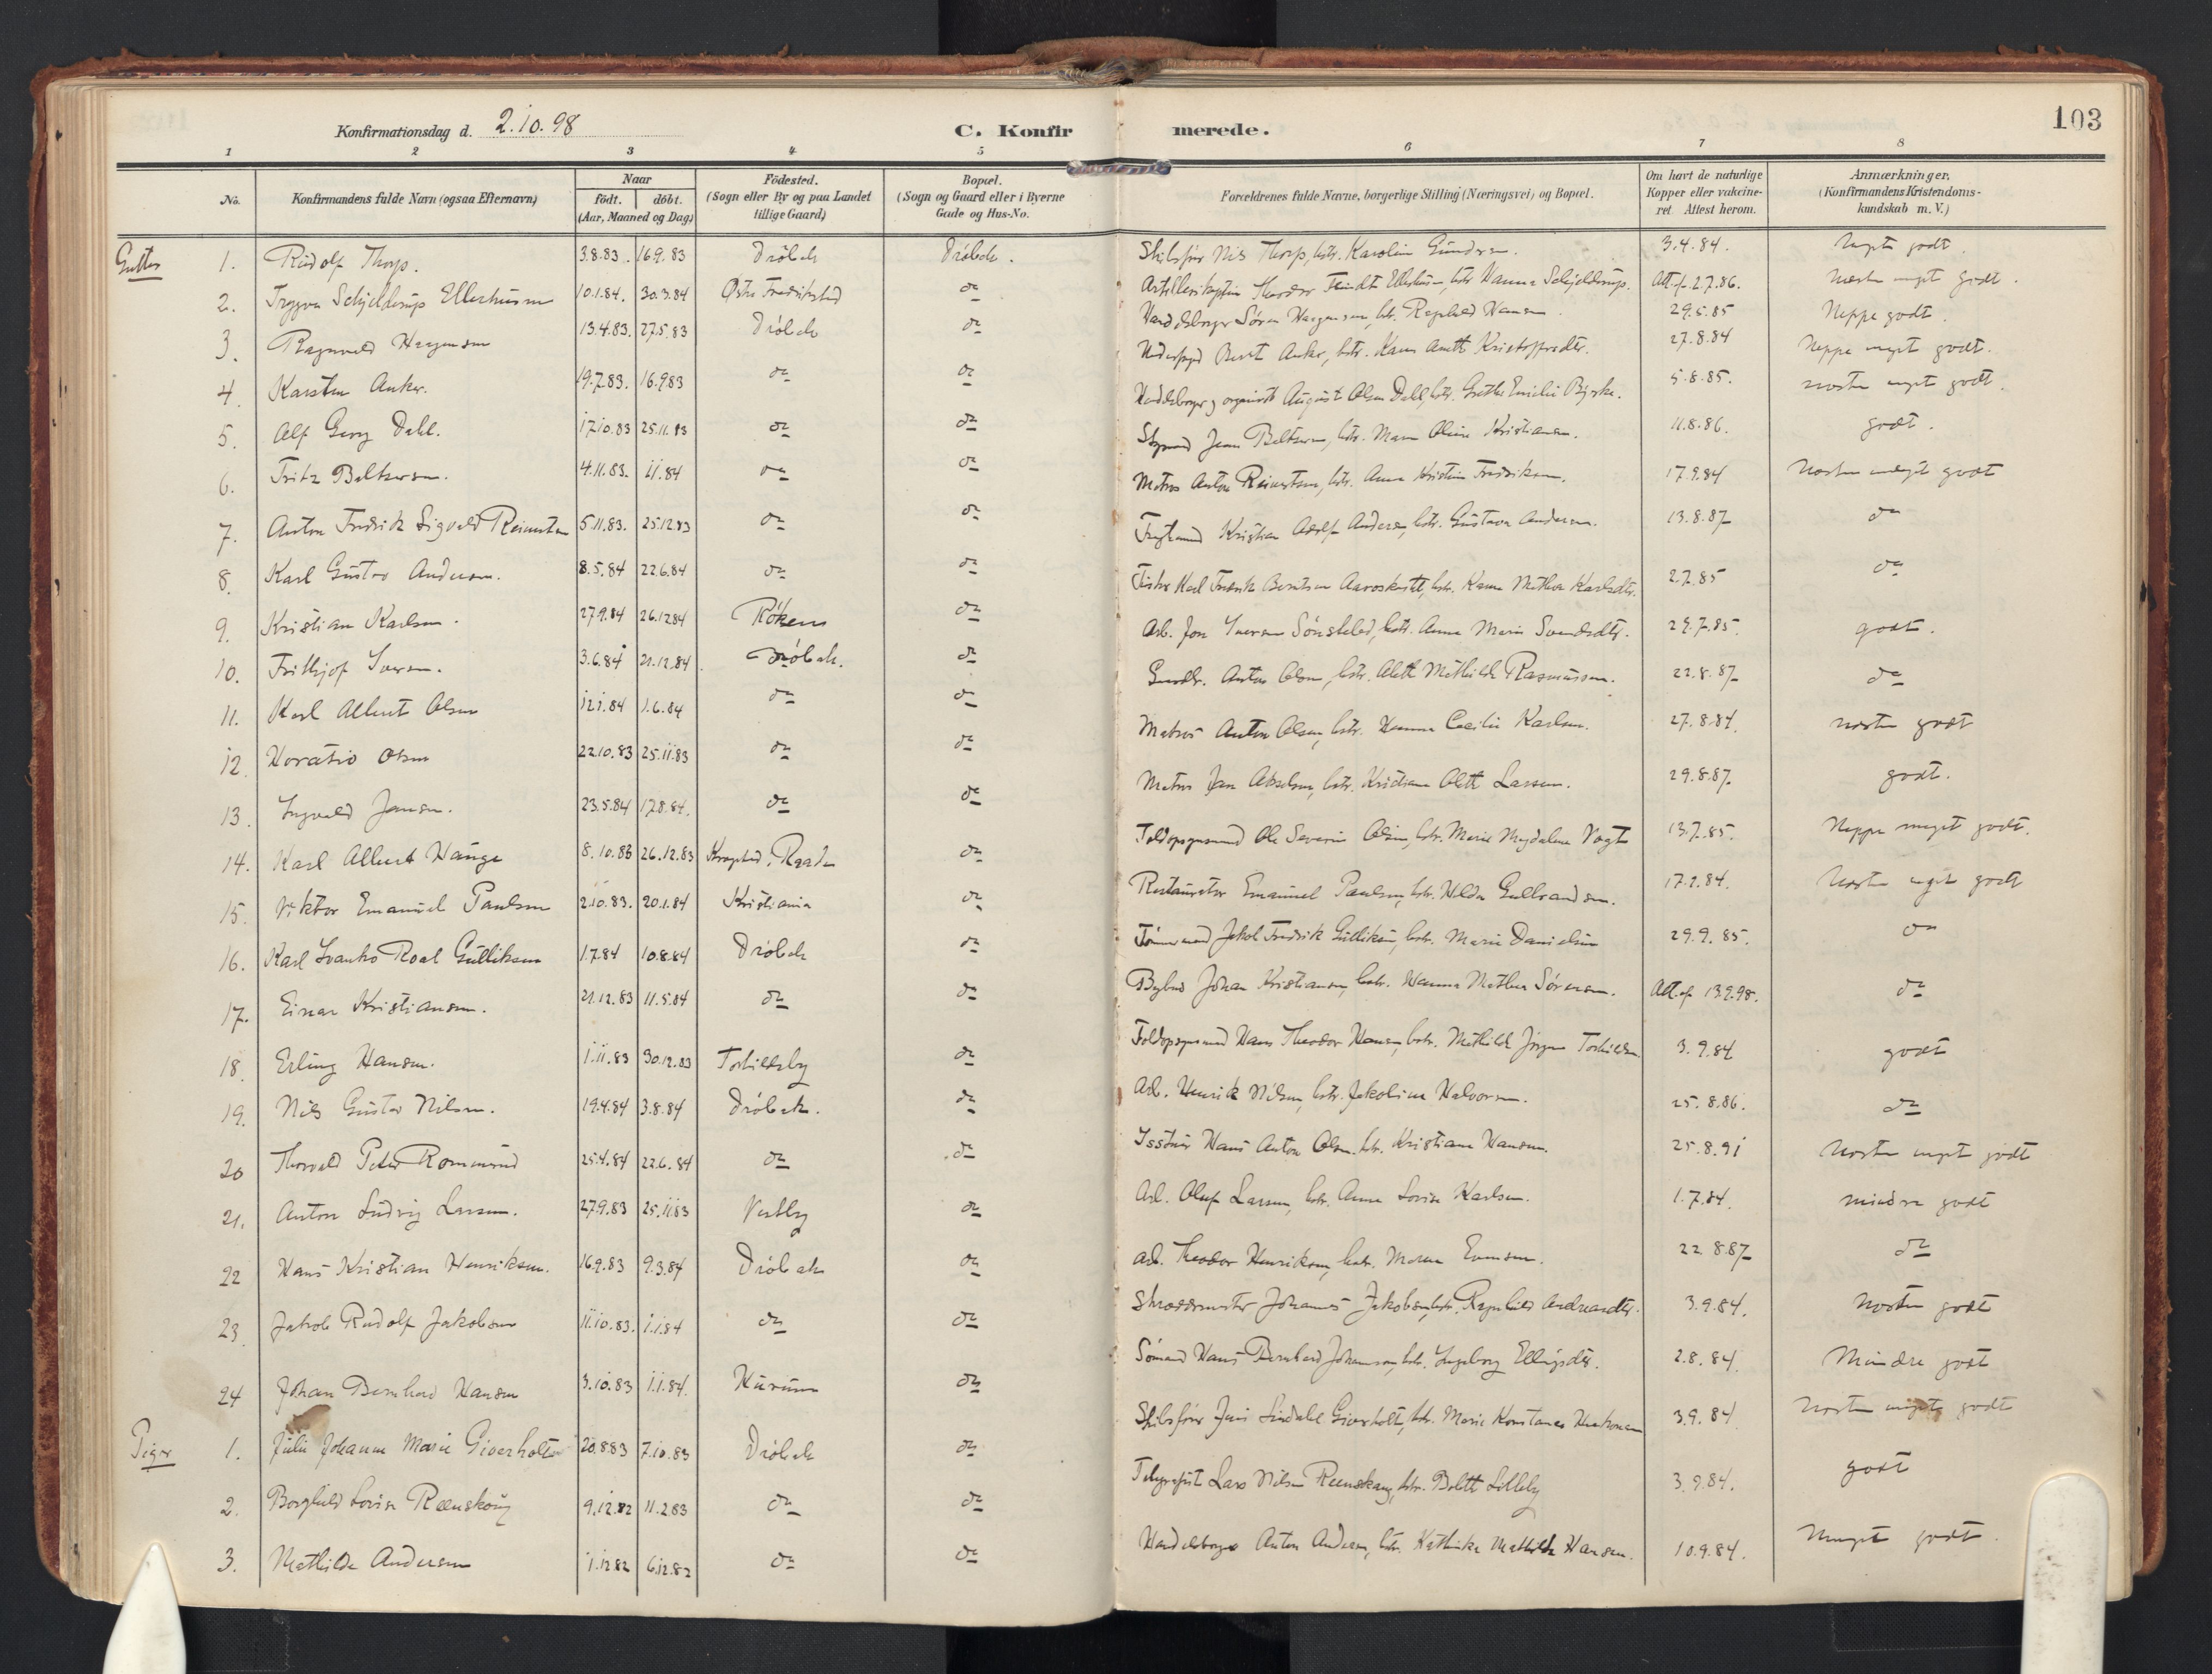 103
Konfirmationsdag d. 2.10.98
C. Konfir merede.
1 2 3 4 5 6 7 8
No. Konfirmandens fulde Navn (ogsaa Efternavn) Naar födt. döbt. (Aar, Maaned og Dag) Födested. (Sogn eller By og paa Landet tillige Gaard) Bopæl. (Sogn og Gaard eller i Byerne Gade og Hus-No. Forældrenes fulde Navne, borgerlige Stilling (Næringsvei) og Bopæl. Om havt de naturlige Kopper eller vakcineret. Attest herom. Anmærkninger, (Konfirmandens Kristendomskundskab m. V.)
Gutter 1. Rudolf Thorp. 3.8.83. 16.9.83 Dröbak Dröbak. Skibsförer Nils Thorp, hstr. Karolin Gundersen. 3.4.84. Meget godt.
2. Tryggve Schjelderup Ellerhusen 10.1.84. 30.3.84 Östre Fredrikstad do Artillerikaptein Theodor Ellerhusen, hstr. Hanna Schjelderup. Att. af 2.7.86. Næsten meget godt.
3. Ragnvald Haagensen 13.4.83. 27.5.83 Dröbak do Handelsborger Sören Haagensen, hstr. Ragnhild Hansen. 29.5.85 Neppe godt.
4. Karsten Anker. 19.7.83. 16.9.83 do do Anker, hstr. Karen Anette Kristoffersdtr. 27.8.84 Neppe meget godt.
5. Alf Georg Dahl. 17.10.83 25.11.83 do do Handelsborger og organist August Olsen Dahl, hstr. Grethe Emilie Bjerke. 5.8.85. næsten meget godt.
6. Fritz Baltzersen. 4.11.83. 1.1.84 do do Styrmand Jens Baltzersen, hstr. Maren Oline Kristiansen. 11.8.86. godt.
7. Anton Fredrik Sigvald Reinertsen 5.11.83. 25.12.83 do do Matros Anton Reinertsen, hstr. Anna Kristine Fredriksen. 17.9.84 Næsten meget godt
8. Karl Gustav Andersen. 8.5.84 22.6.84 do do Kristian Adolf Andersen, hstr. Gustava Andersen. 13.8.87 do
9. Kristian Karlsen. 27.9.84 26.12.84 Röken do Fisker Karl Fredrik Berntsen, hstr. Karen Mathea Karlsdtr. 2.7.85 do
10. Frithjof Iversen. 3.6.84 21.12.84. Dröbak. do Arb. Jon Iversen, hstr. Anne Marie Svendsdtr. 24.7.85. godt.
11. Karl Albert Olsen 12.1.84 1.6.84 do do Anton Olsen, hstr. Alette Mathilde Rasmussen. 22.8.87 do
12. Horatio Olsen 22.10.83 25.11.83 do do Matros Anton Olsen, hstr. Hanna Cecilie Karlsen. 27.8.84. næsten godt
13. Ingvald Jansen. 23.5.84 17.8.84. do do Matros Jan, hstr. Kristiane Olette Larsen. 29.8.87 godt.
14. Karl Albert Hauge 8.10.83 26.12.83 Kraakstad, do Toldopsynsmand Ole Severin Olsen, hstr. Marie Magdalene Vogt 13.7.85. Neppe meget godt.
15. Viktor Emanuel Paulsen 2.10.83. 20.1.84 Kristiania do Restauratør Emanuel Paulsen, hstr. Hilda Gulbrandsen. 17.9.84. Næsten meget godt
16. Karl Ivanko Roal Gulliksen 1.7.84 10.8.84 Dröbak do Tömmermand Jakob Fredrik Gulliksen, hstr. Marie Danielsen 29.9.85. do
17. Einar Kristiansen. 21.12.83 11.5.84 do do Bybud Johan Kristiansen, hstr. Hanna Mathea Sörensen. Att. af 13.9.98. do
18. Erling Hansen. 1.11.83 30.12.83 Torkildsby do Toldopsynsmand Hans Theodor Hansen, hstr. Mathilde Torkildsen 3.9.84 godt
19. Nils Gustav Nilsen. 19.4.84 3.8.84 Dröbak. do Arb. Henrik Nilsen, hstr. Jakobine Halvorsen. 25.8.86. do
20 Thorvald Peter Rommerud 25.4.84 22.6.84 do do Hans Anton Olsen, hstr. Kristiane Hansen. 25.8.91 Næsten meget godt
21. Anton Ludvig Larsen. 27.9.83 25.11.83 Vestby do Arb. Oluf Larsen, hstr. Anna Lovise Karlsen. 1.7.84. mindre godt
22 Hans Kristian Henriksen. 16.9.83 9.3.84 Dröbak do Arb. Theodor Henriksen, hstr. Maren Evensen. 22.8.87 do
23 Jakob Rudolf Jakobsen 11.10.83. 1.1.84 do do Skræddermester Johannes Jakobsen, hstr. Ragnhild Andreasdtr. 3.9.84. Næsten godt
24 Johan Bernhard Hansen 3.10.83 1.1.84. Hurum do Sömand Hans Bernhard Johansen, hstr. Ingeborg Ellingsdtr. 2.8.84. Mindre godt
Piger 1. Julie Johanne Marie Giverholt 20.8.83 7.10.83 Dröbak do Skibsförer Jens Lindahl Giverholt, hstr. Marie Konstance Haakonsen 3.9.84. Næsten meget godt
2. Borghild Lovise Reenskoug 9.12.82 11.2.83 do do Telegrafist Lars Nilsen Reenskaug, hstr. Bolette Lilleby 3.9.84. godt
3. Mathilde Andersen 1.12.82 6.12.82 do do Handelsborger Anton Andersen, hstr. Kathinka Mathilde Hansen. 10.9.84. Meget godt.